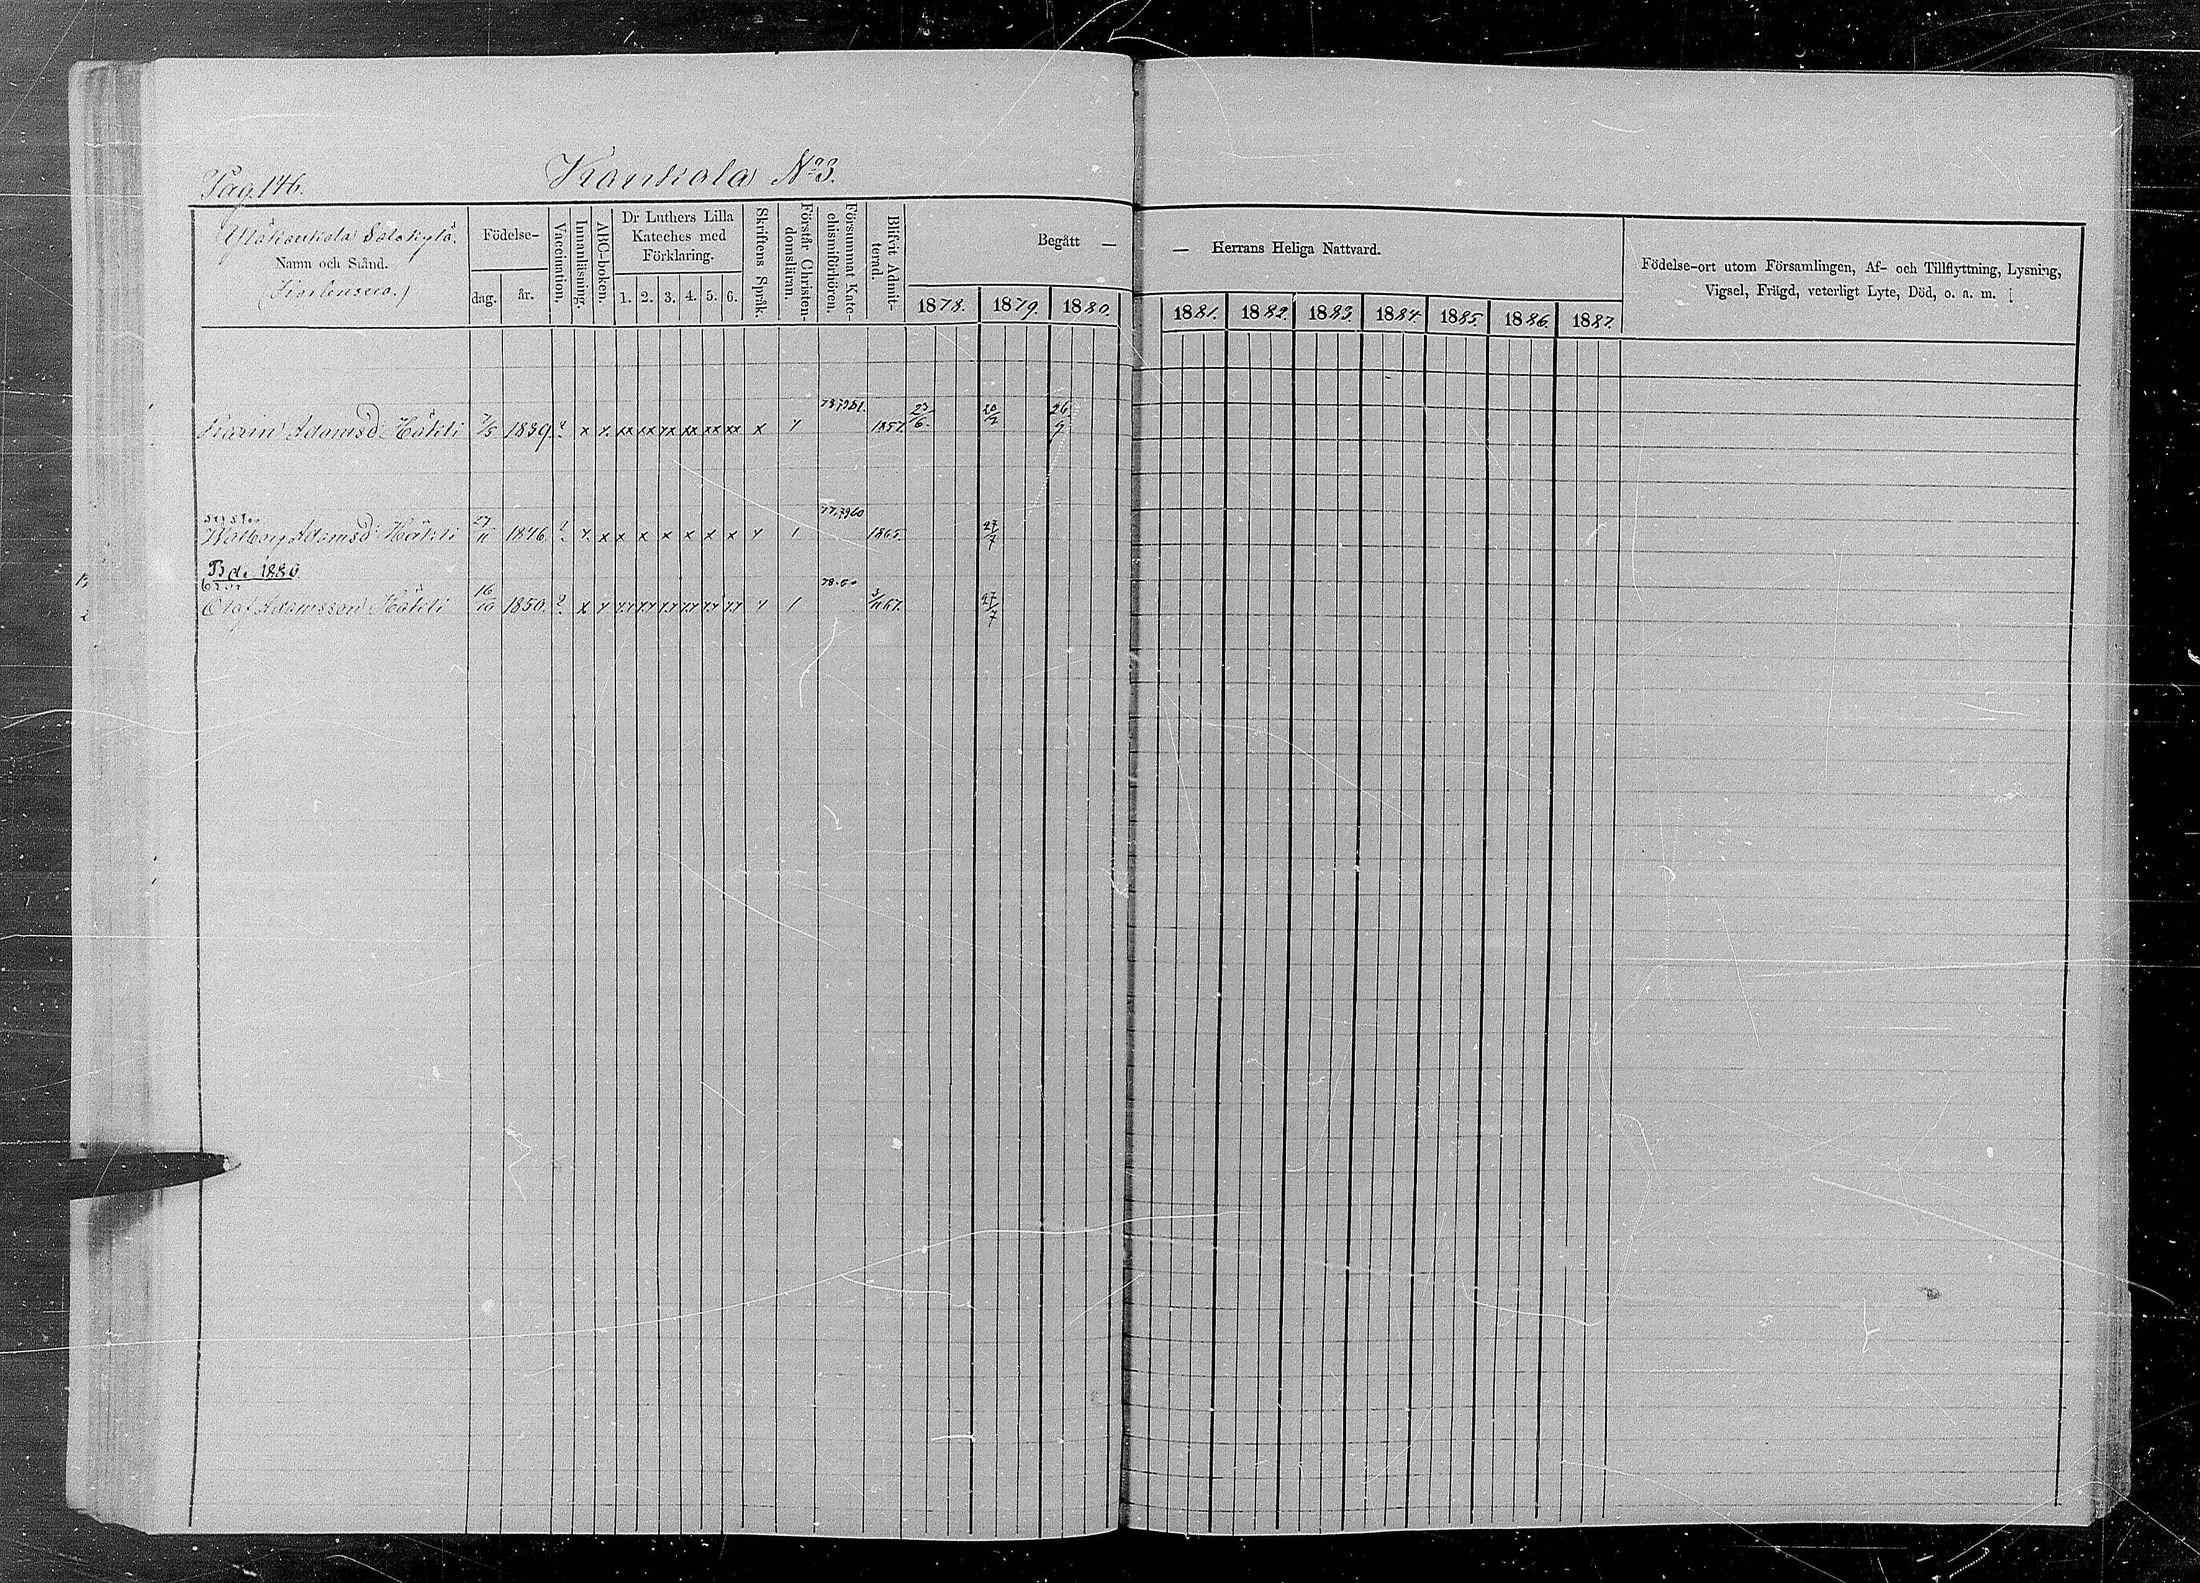 Pag. 146.
Kankola № 3.
Namn och Stånd.
Födelse-
dag.
år.
Vaccination.
Innanläsning.
ABC-boken.
Dr Luthers Lilla
Kateches med
Förklaring.
1. 2. 3. 4. 5. 6.
Skriftens Språk.
Förstår Christen-
domsläran.
Försummat Kate-
chismiförhören.
Blifvit Admit-
terad.
Begått —
1878. 1879. 1880.
— Herrans Heliga Nattvard.
1881. 1882. 1883. 1884. 1885. 1886. 1887.
Födelse-ort utom Församlingen, Af- och Tillflyttning, Lysning,
Vigsel, Frägd, veterligt Lyte, Död, o. a. m.
Karin Adamsd. Häkli 7/5 1839. ? x x. xx xx xx xx xx xx x 1857. 23/6. 26/9
Walborg Adamsd Häkli 27/11 1846. ? x. x x x x x x x 1865. 27/7
1880
Olaf Adamsson Häkli 16/10 1850. ? x 27/7